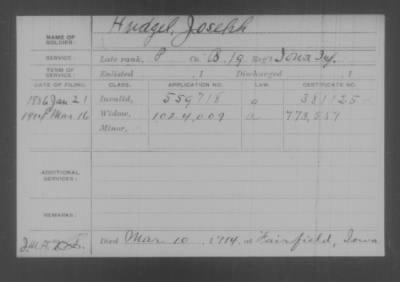 Hudgel, Joseph
NAME OF SOLDIER:
SERVICE: Late rank, P Co. B, 19 Reg't Iowa Inf.
TERM OF SERVICE: Enlisted , 1 Discharged , 1
DATE OF FILING. CLASS. APPLICATION NO. LAW. CERTIFICATE NO.
1886 Jan 21 Invalid, 559718 a 381125
1914 Mar 16 Widow, 1024,009 a 773,557
Minor,
ADDITIONAL SERVICES:
REMARKS:
Died Mar. 10, 1914, at Fairfield, Iowa